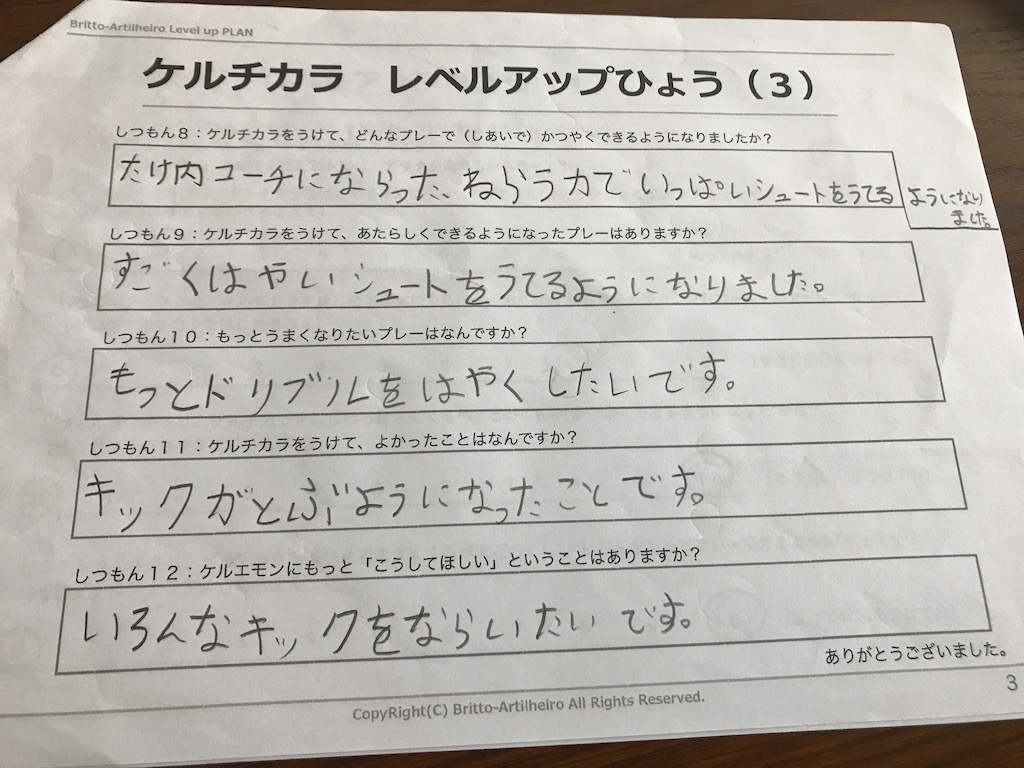 Britto-Artilheiro Level up PLAN
ケルチカラ　レベルアップひょう（３）
しつもん８：ケルチカラをうけて、どんなプレーで（しあいで）かつやくできるようになりましたか？
たけ内コーチにならった、ねらう力でいっぱいシュートをうてる
ようになり
ました。
しつもん９：ケルチカラをうけて、あたらしくできるようになったプレーはありますか？
すごくはやいシュートをうてるようになりました。
しつもん１０：もっとうまくなりたいプレーはなんですか？
もっとドリブルをはやくしたいです。
しつもん１１：ケルチカラをうけて、よかったことはなんですか？
キックがとぶようになったことです。
しつもん１２：ケルエモンにもっと「こうしてほしい」ということはありますか？
いろんなキックをならいたいです。
ありがとうございました。
3
CopyRight(C) Britto-Artilheiro All Rights Reserved.